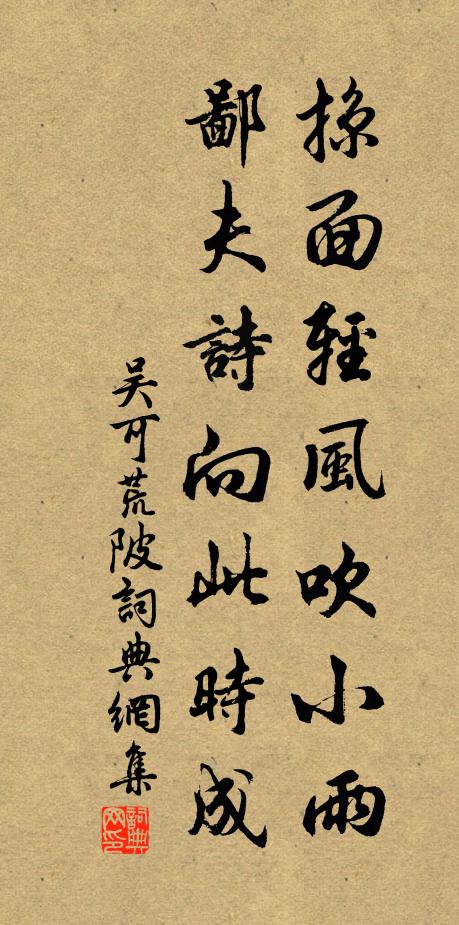 掠面輕風吹小雨
鄙夫詩向此時成
吴可荒陂詞典網集
詞典
网印